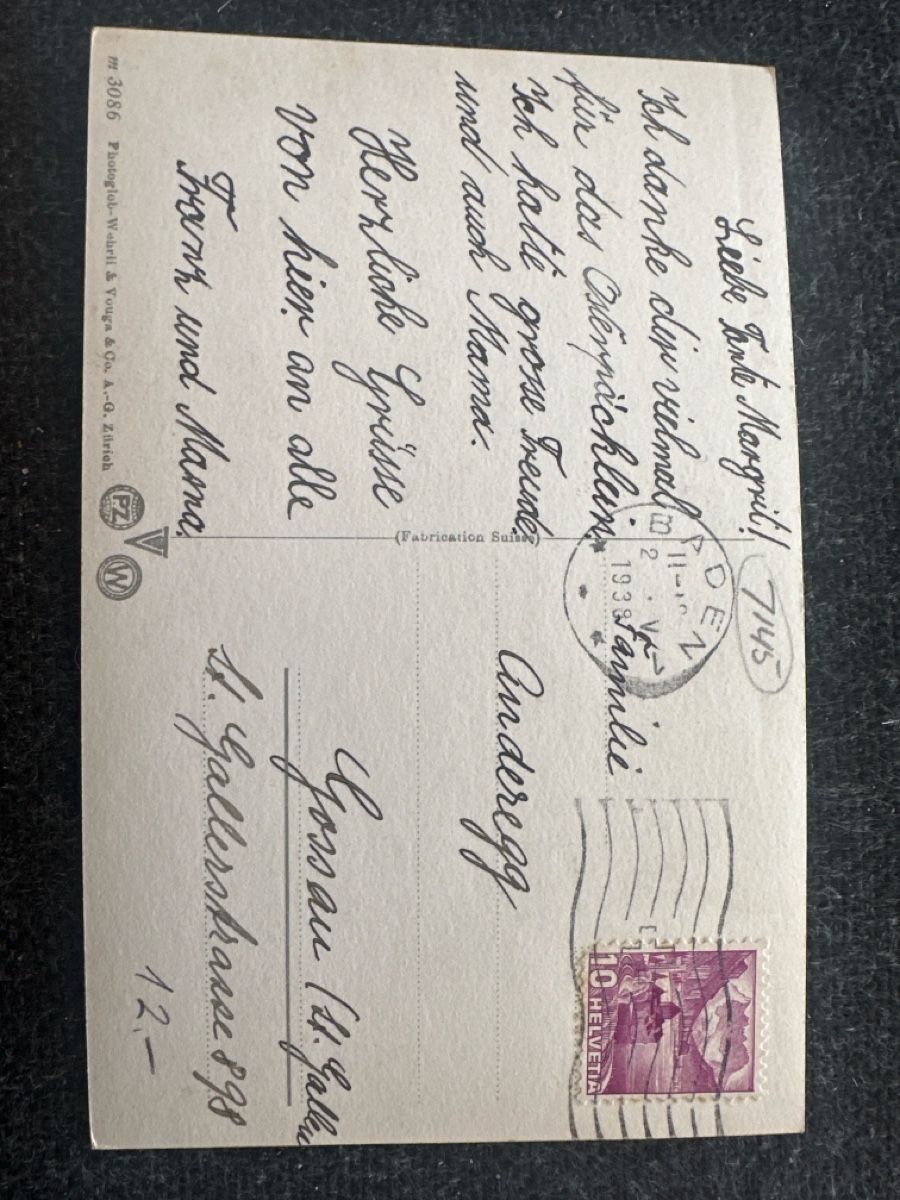 Liebe Tante Margrit!
Ich danke dir vielmal
für das Osterpäcklein.
Ich hatte grosse Freude
und auch Mama.
Herzliche Grüsse
von hier an alle
Franz und Mama.
m 3086 Photoglob-Wehrli & Vouga & Co. A.-G. Zürich
PZ
W
(Fabrication Suisse)
7145
1938
Familie
Anderegg
Gossau (St. Gallen
St. Gallerstrasse 898
12.-
10 HELVETIA